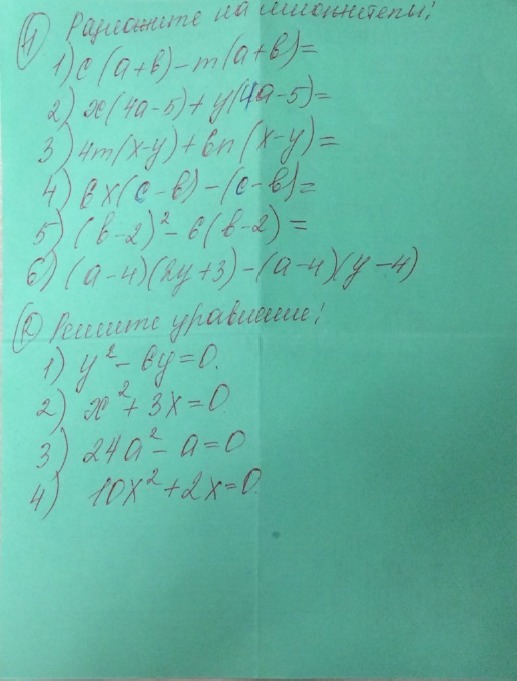 1 Разложите на множители:
1) c(a+b)-m(a+b)=
2) x(4a-5)+y(4a-5)=
3) 4m(x-y)+6n(x-y)=
4) 6x(c-b)-(c-b)=
5) (b-2)²-6(b-2)=
6) (a-4)(2y+3)-(a-4)(y-4)
2 Решите уравнение:
1) y²-6y=0.
2) x²+3x=0
3) 24a²-a=0
4) 10x²+2x=0.